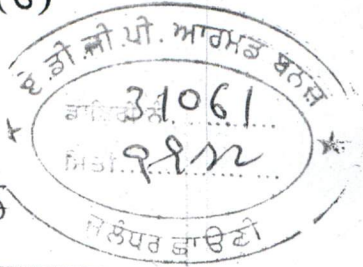 ਏ.ਡੀ.ਜੀ.ਪੀ. ਆਰਮਡ ਬਨਜ਼
ਡਾਇਰੀ ਨੰ 31061
ਮਿਤੀ
ਜਲੰਧਰ ਛਾਉਣੀ